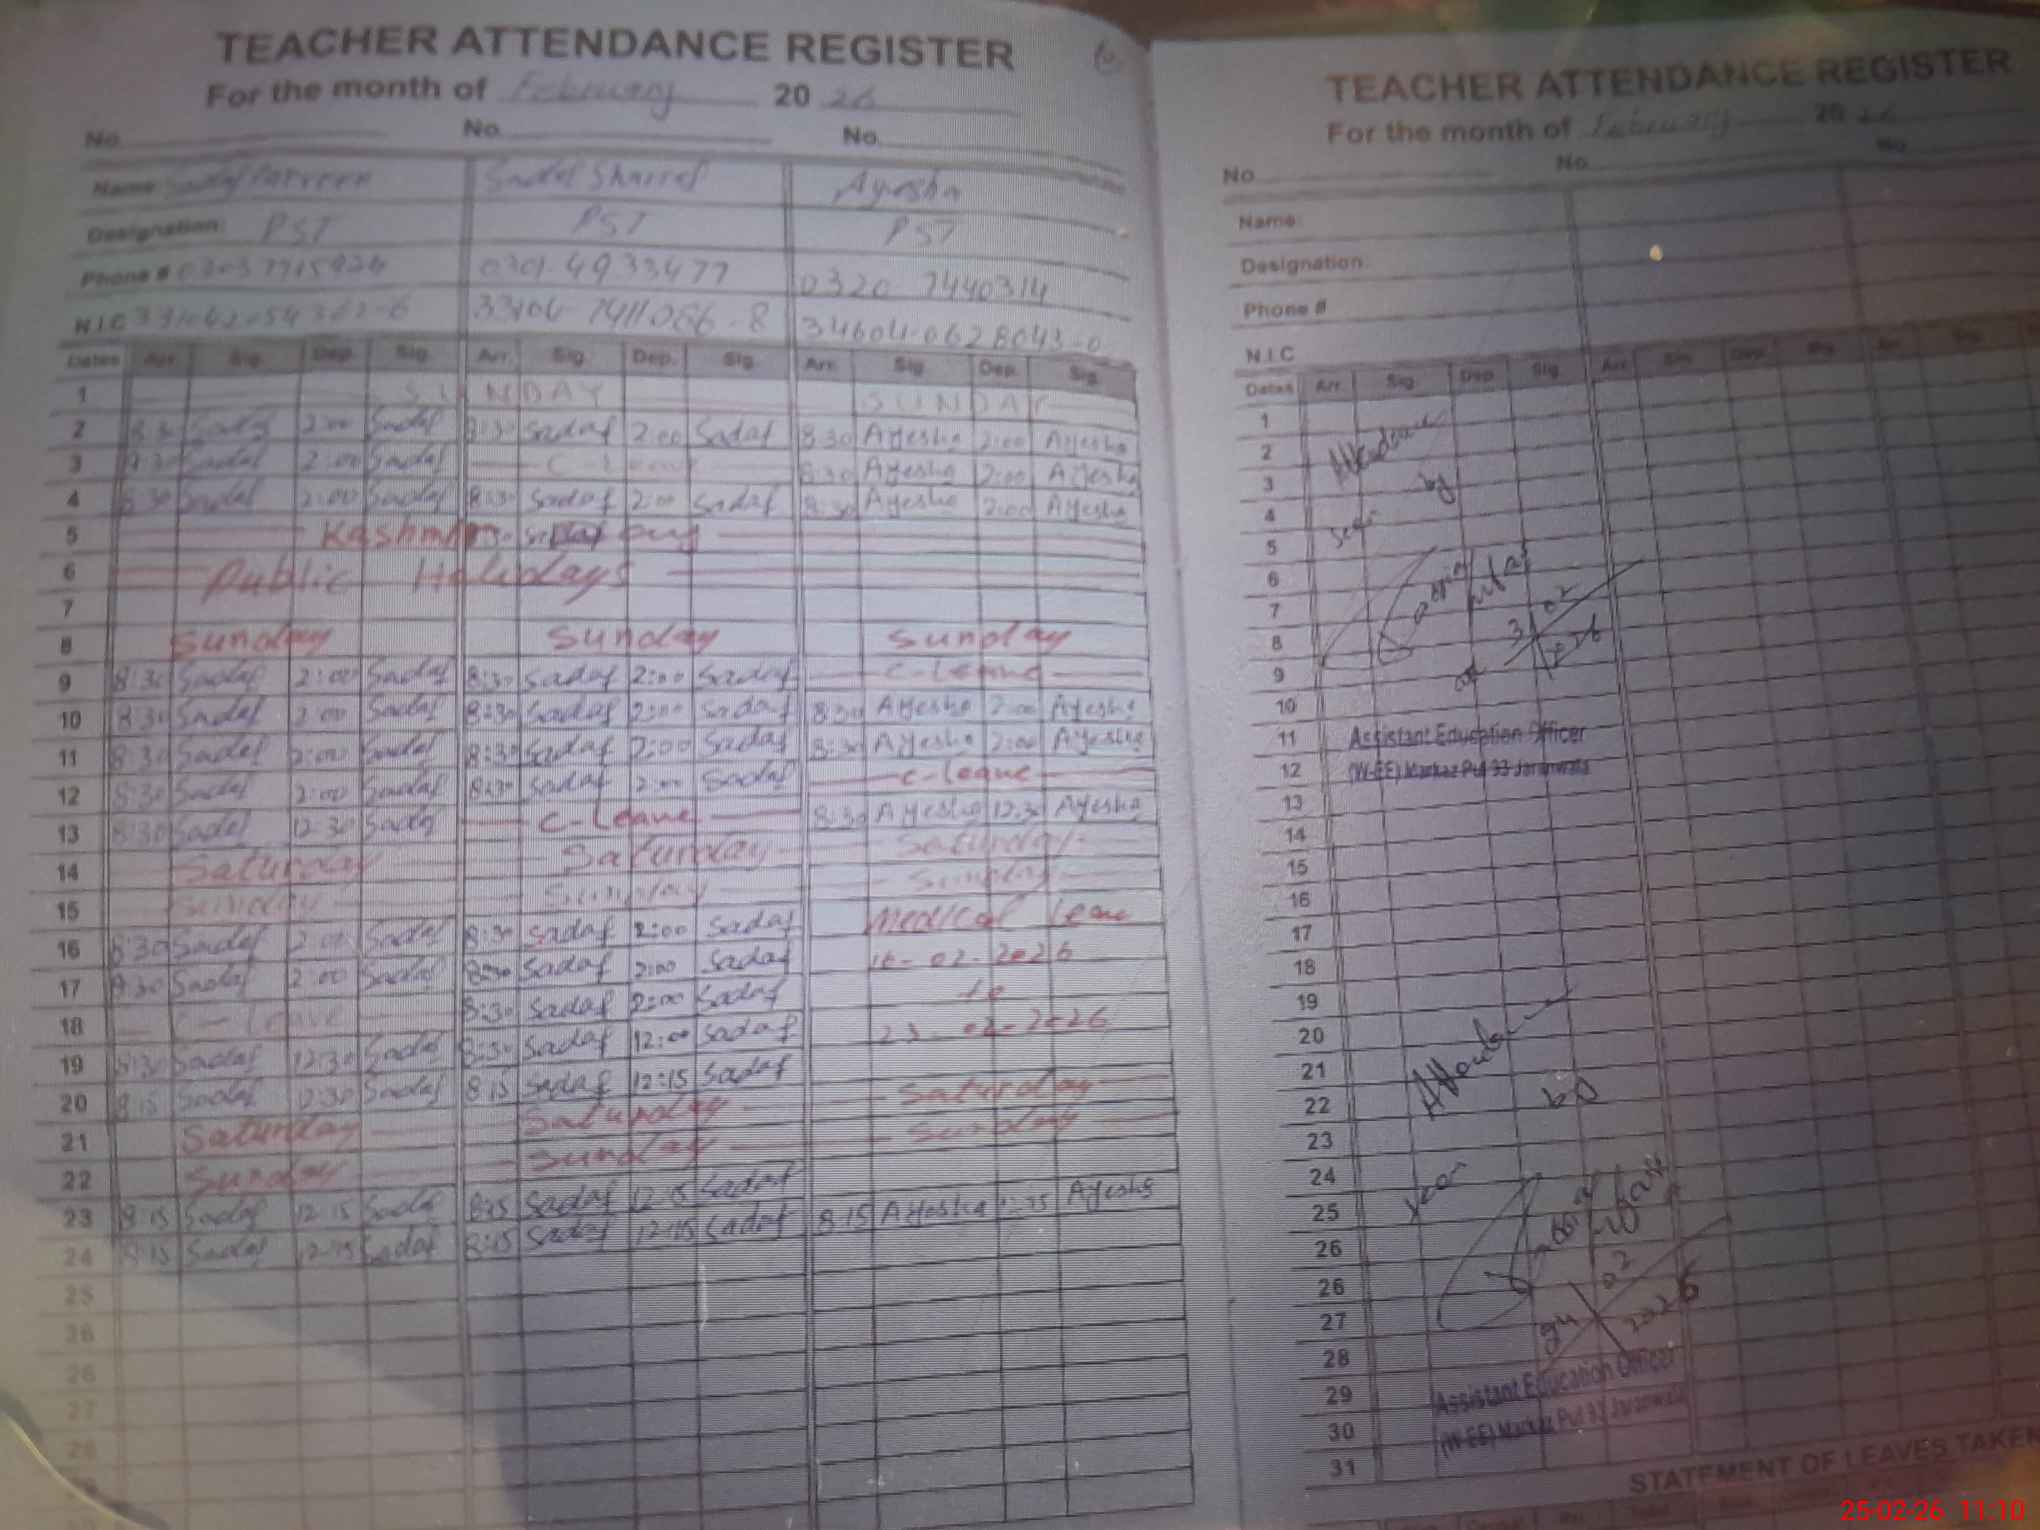 TEACHER ATTENDANCE REGISTER
For the month of February 20 26
No. No. No.
Name Sadaf Parveen Sadaf Sharref Ayesha
Designation: PST PST PST
Phone # 0301-4933477 0320 7440314
N.I.C 34604-0628043-0
Dates Arr. Sig. Dep. Sig. Arr. Sig. Dep. Sig. Arr. Sig. Dep. Sig.
1 SUNDAY SUNDAY
2 8:30 Sadaf 2:00 Sadaf 8:30 Sadaf 2:00 Sadaf 8:30 Ayesha 2:00 Ayesha
3 8:30 Sadaf 2:00 Sadaf C-Leave 8:30 Ayesha 2:00 Ayesha
4 8:30 Sadaf 2:00 Sadaf 8:30 Sadaf 2:00 Sadaf 8:30 Ayesha 2:00 Ayesha
5 Kashmir Day
6 Public Holidays
7
8 Sunday Sunday Sunday
9 8:30 Sadaf 2:00 Sadaf 8:30 Sadaf 2:00 Sadaf C-Leave
10 8:30 Sadaf 2:00 Sadaf 8:30 Sadaf 2:00 Sadaf 8:30 Ayesha 2:00 Ayesha
11 8:30 Sadaf 2:00 Sadaf 8:30 Sadaf 2:00 Sadaf 8:30 Ayesha 2:00 Ayesha
12 8:30 Sadaf 2:00 Sadaf 8:30 Sadaf 2:00 Sadaf C-Leave
13 8:30 Sadaf 12:30 Sadaf C-Leave 8:30 Ayesha 12:30 Ayesha
14 Saturday Saturday Saturday
15 Sunday Sunday Sunday
16 8:30 Sadaf 2:00 Sadaf 8:30 Sadaf 2:00 Sadaf Medical Leave
17 8:30 Sadaf 2:00 Sadaf 8:30 Sadaf 2:00 Sadaf 16-02-2026
18 C-Leave 8:30 Sadaf 2:00 Sadaf to
19 8:30 Sadaf 12:30 Sadaf 8:30 Sadaf 12:00 Sadaf 02-2026
20 8:15 Sadaf 12:30 Sadaf 8:15 Sadaf 12:15 Sadaf
21 Saturday Saturday Saturday
22 Sunday Sunday Sunday
23 8:15 Sadaf 12:15 Sadaf 8:15 Sadaf 12:15 Sadaf 8:15 Ayesha 12:15 Ayesha
24 8:15 Sadaf 12:15 Sadaf 8:15 Sadaf 12:15 Sadaf
25
26
26
27
28
TEACHER ATTENDANCE REGISTER
For the month of February 20 26
No. No. No.
Name
Designation
Phone #
N.I.C
Dates Arr. Sig. Dep. Sig. Arr. Sig. Dep. Sig.
1
2 Attendance
3 by
4
5
6
7
8
9
10
11 Assistant Education Officer
12 (W-EE) Markaz Pul 33 Jaranwala
13
14
15
16
17
18
19
20
21
22
23
24
25
26
26
27
28
29 Assistant Education Officer
30 (W-EE) Markaz Pul 33 Jaranwala
31
STATEMENT OF LEAVES TAKEN
25-02-26 11:10